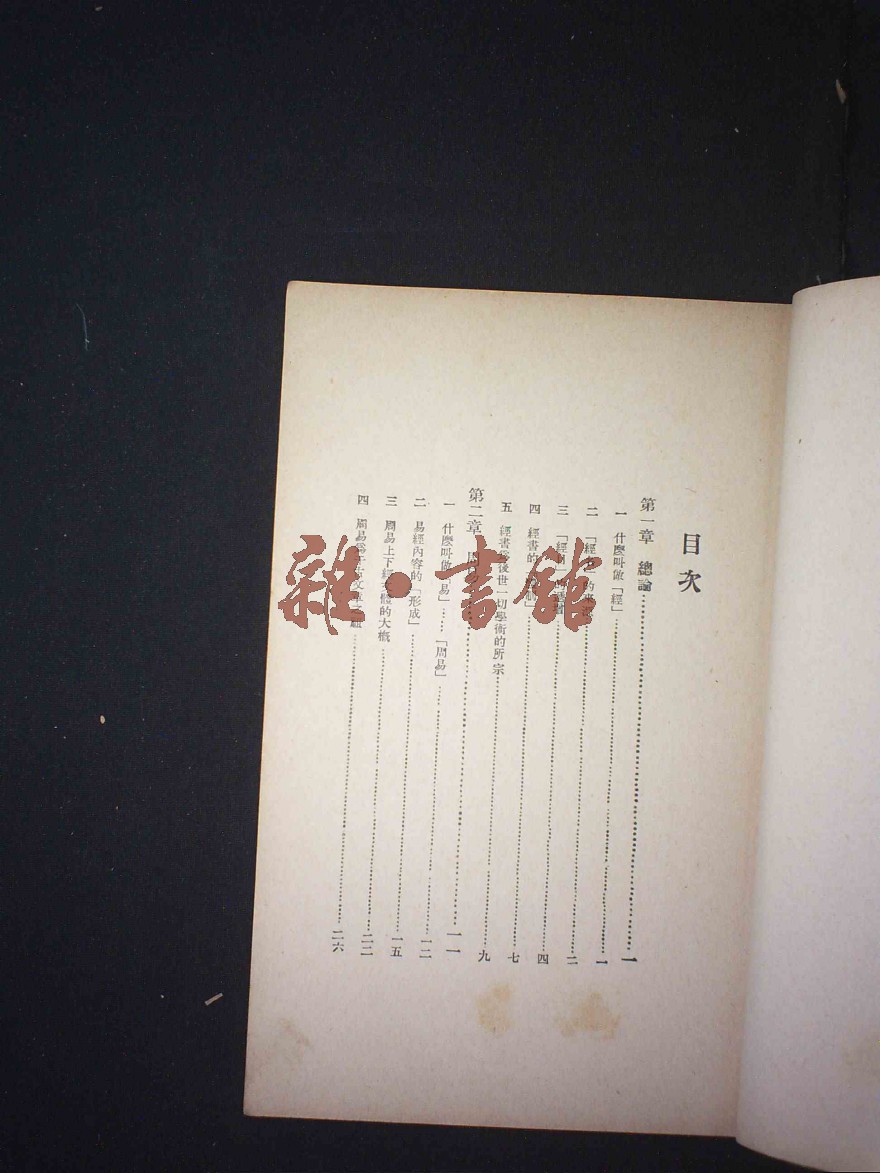 目次
第一章 總論 一
一 什麼叫做「經」 一
二 「經 的 二
三 「經 四
四 經書的 七
五 經書 後世一切學術的所宗 九
第二章 一一
一 什麼叫做「易」……「周易」 一二
二 易經內容的「形成」 一五
三 周易上下經 體的大概 二二
四 周易爲 文 二六
雜·書館